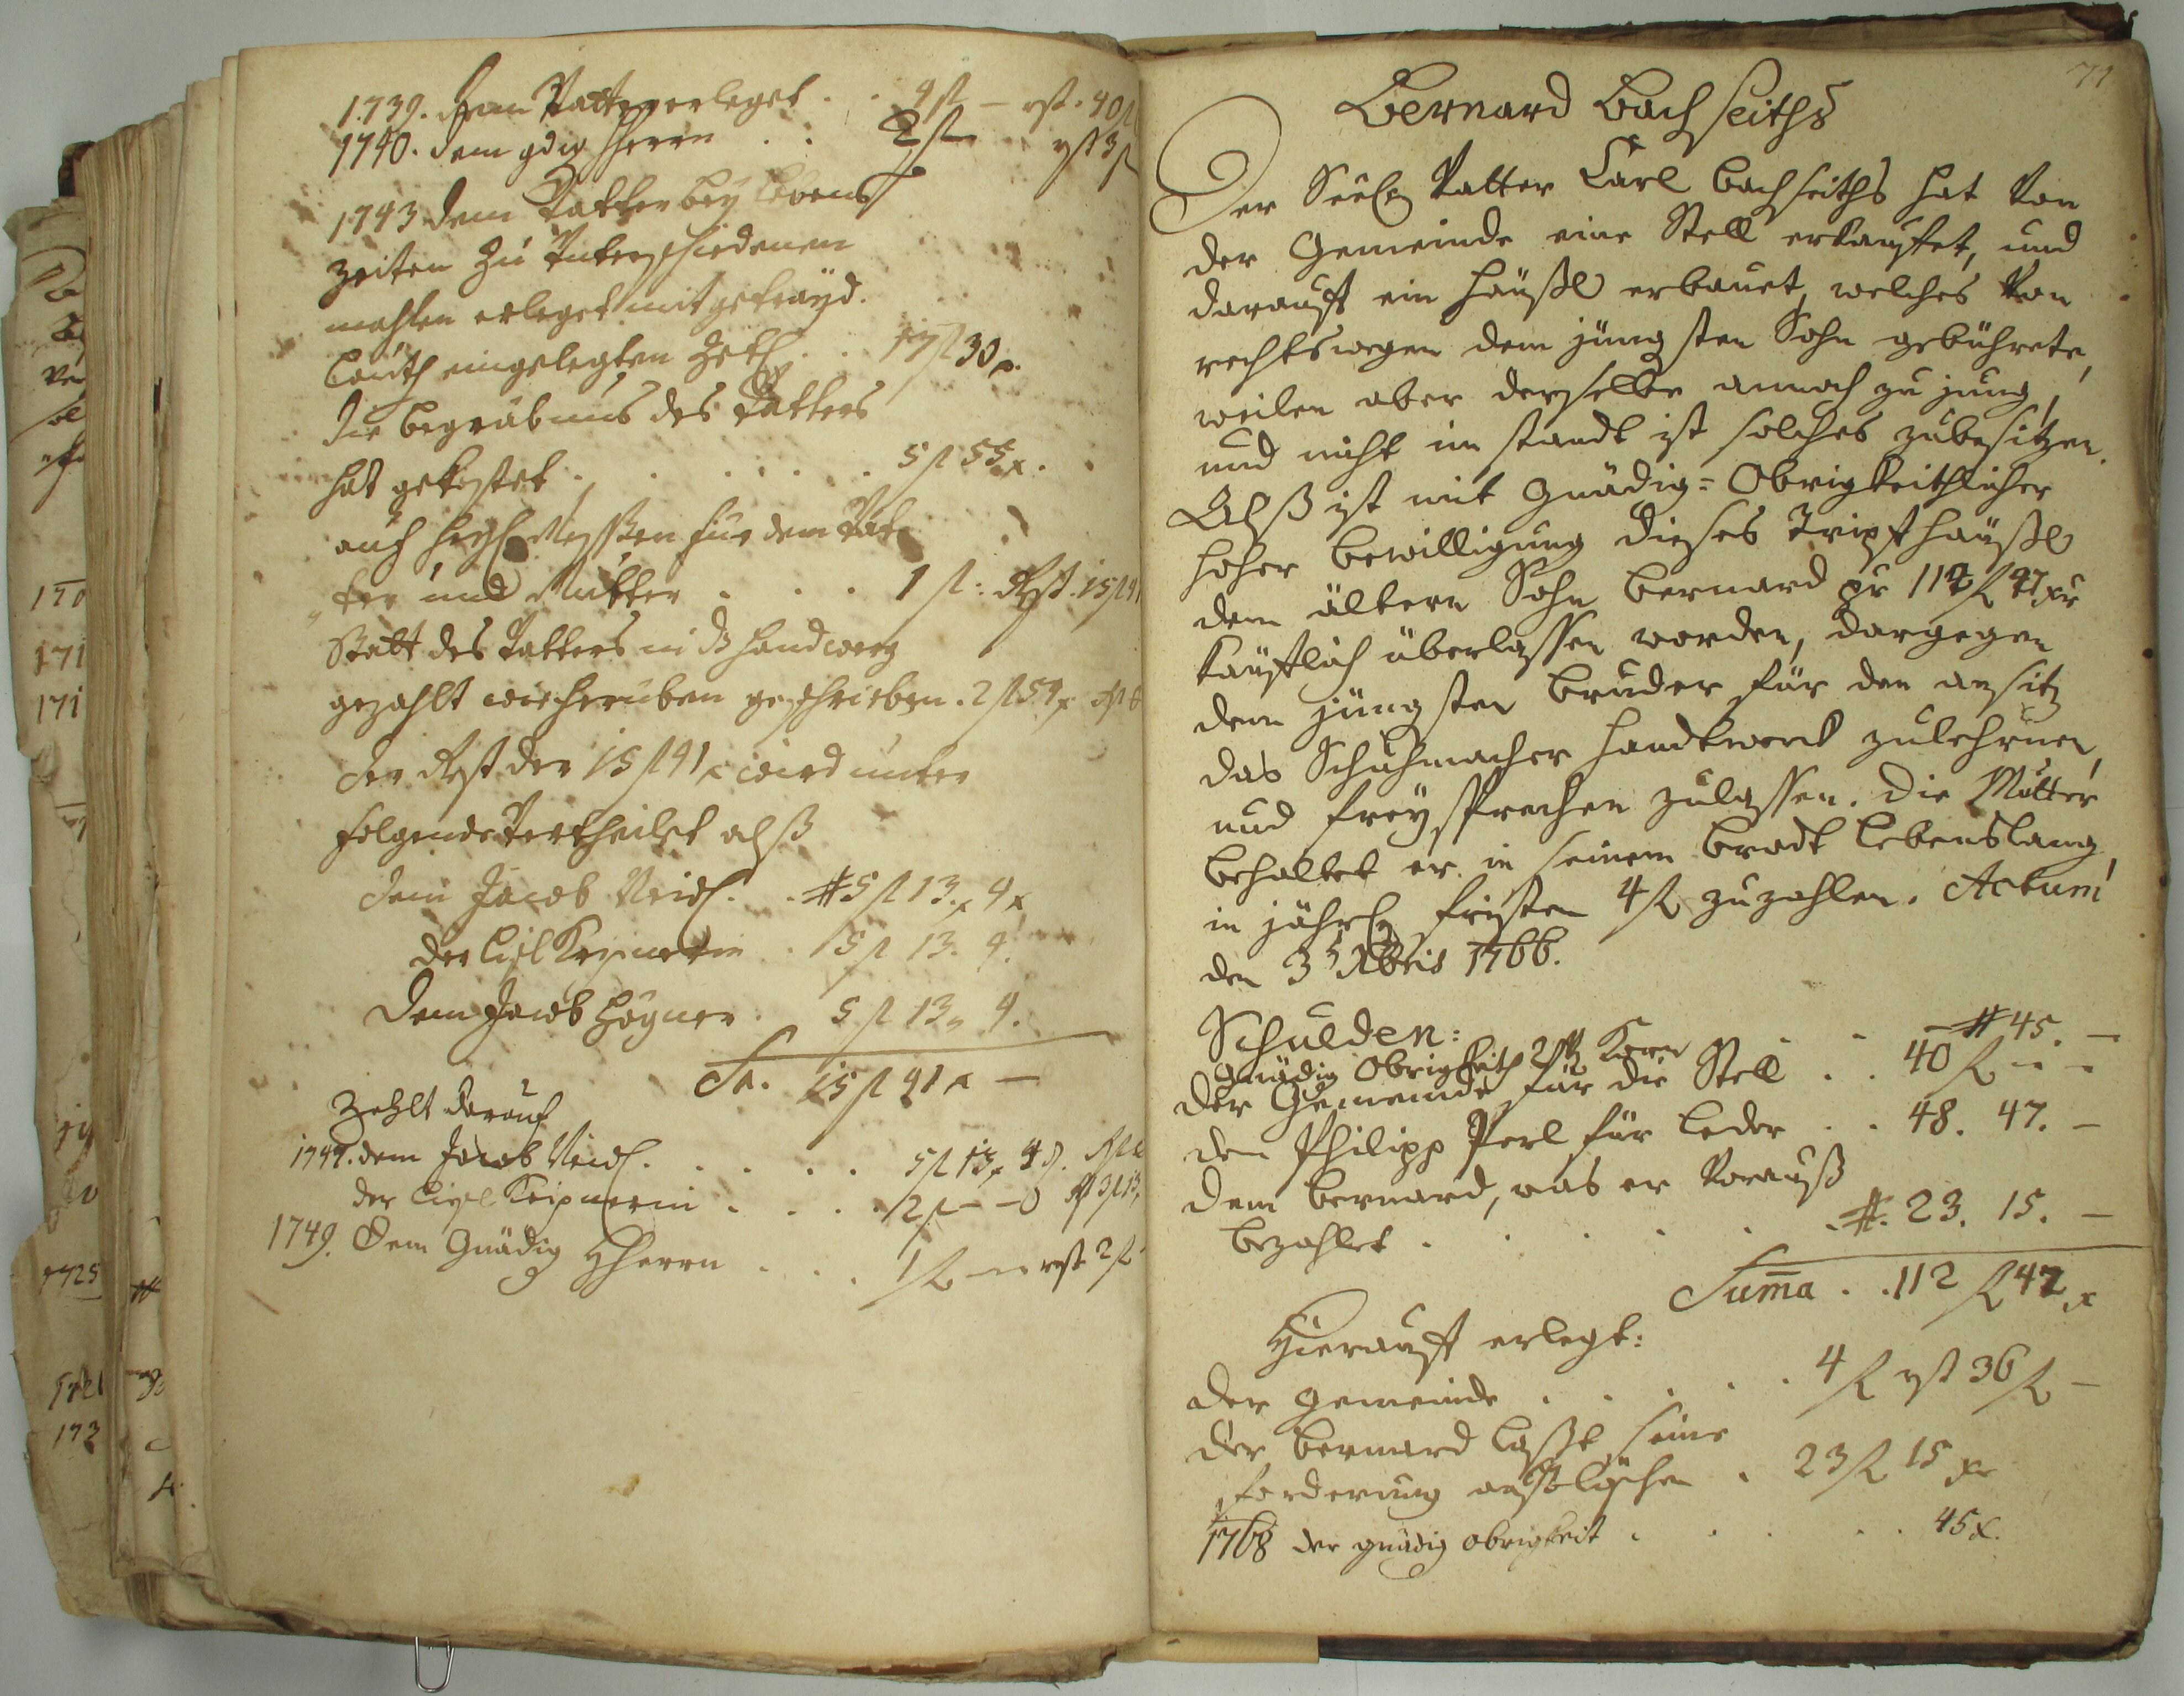 1739. dem Vatter erleget . . 4 fl — rst. 40 fl
1740. dem gdig Herrn . . 2 fl — rst 3
1743 dem Vatter bey Lebens
zeiten zu Unterschiedenen
mahlen erleget mit getrayd.
Lauth eingelegten Zetl . . 17 fl 30 x.
Die begräbnus des Vatters
hat gekostet . . . . . . 5 fl 55 x.
auf heyl Messen für dem Vat
ter und Mutter . . . 1 fl: Rst. 15 fl 41
Statt des Vatters in ds handwerg
gezahlt wie heruben geschrieben. 2 fl 59 x
der Rest der 15 fl 41 x wird unter
folgende Vertheilet alß
dem Jacob Neidl . . # 5 fl 13 x 4
der Lisl . 5 fl 13. 4.
dem Jacob Högner . 5 fl 13 „ 4.
Sa. 15 fl 41 x —
Zahlt darauf
1747. dem Jacob Neidl . . . . . 5 fl 13 x 4 d.
der Lisl . . . . 2 fl — — rst 3 fl 13
1749. Dem Gnädig HHerrn . . . 1 fl — — rst 2 fl
71
Bernard Bachseiths
Der Seelig Vatter Carl Bachseiths hat Von
der Gemeinde eine Stell erkauffet, und
darauff ein häußl erbauet, welches Von
rechtswegen dem jüngsten Sohn gebührete,
weilen aber derselbe annoch zu jung,
und nicht im standt ist solches zubesitzen.
Alß ist mit Gnädig= Obrigkeithlicher
hoher bewilligung dieses häußl
dem ältern Sohn Bernard pr 112 fl 47 xr
käufflich überlassen worden, dargegen
dem jüngsten Bruder für den ansitz
das Schuhmacher Handtwerk zulehrnen,
und freysprechen zulassen. Die Mutter
behaltet er in seinem brodt lebenslang,
in jährlig fristen 4 fl zuzahlen. Actum
den 3t Xbris 1766.
Schulden:
Gnädig Obrigkeith 2 Mz Korn . . — # 45. —
der Gemeinde für die Stell . . 40 fl — —
dem Philipp Perl für Leder . . 48. 47. —
dem Bernard, was er Vorauß
bezahlet . . . . . # . 23. 15. —
Suma . . 112 fl 47 x
Hierauff erlegt:
der Gemeinde . . . . . 4 fl rst 36 fl —
der Bernard lasst seine
forderung außlöschen . 23 fl 15 xr
1768 der gnädig obrigkeit . . . . . 45 x.